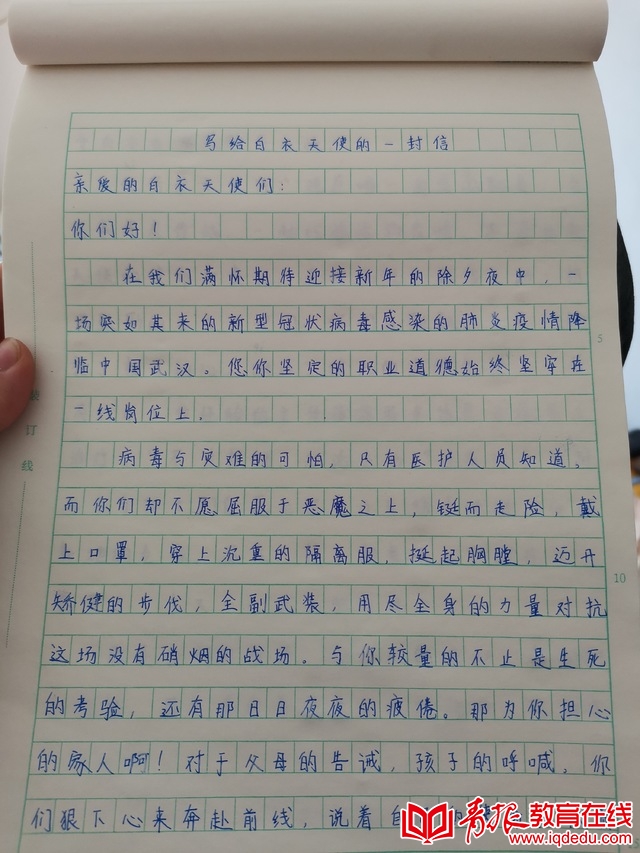 写给白衣天使的一封信
亲爱的白衣天使们：
你们好！
在我们满怀期待迎接新年的除夕夜中，一
场突如其来的新型冠状病毒感染的肺炎疫情降
临中国武汉。您你坚定的职业道德始终坚牢在
一线岗位上．
病毒与灾难的可怕，只有医护人员知道。
而你们却不愿屈服于恶魔之上，铤而走险，戴
上口罩，穿上沉重的隔离服，挺起胸膛，迈开
矫健的步伐，全副武装，用尽全身的力量对抗
这场没有硝烟的战场。与你较量的不止是生死
的考验，还有那日日夜夜的疲倦。那为你担心
的家人啊！对于父母的告诫，孩子的呼喊，你
们狠下心来奔赴前线，说着
装订线
5
10
青报教育在线
www.iqdedu.com